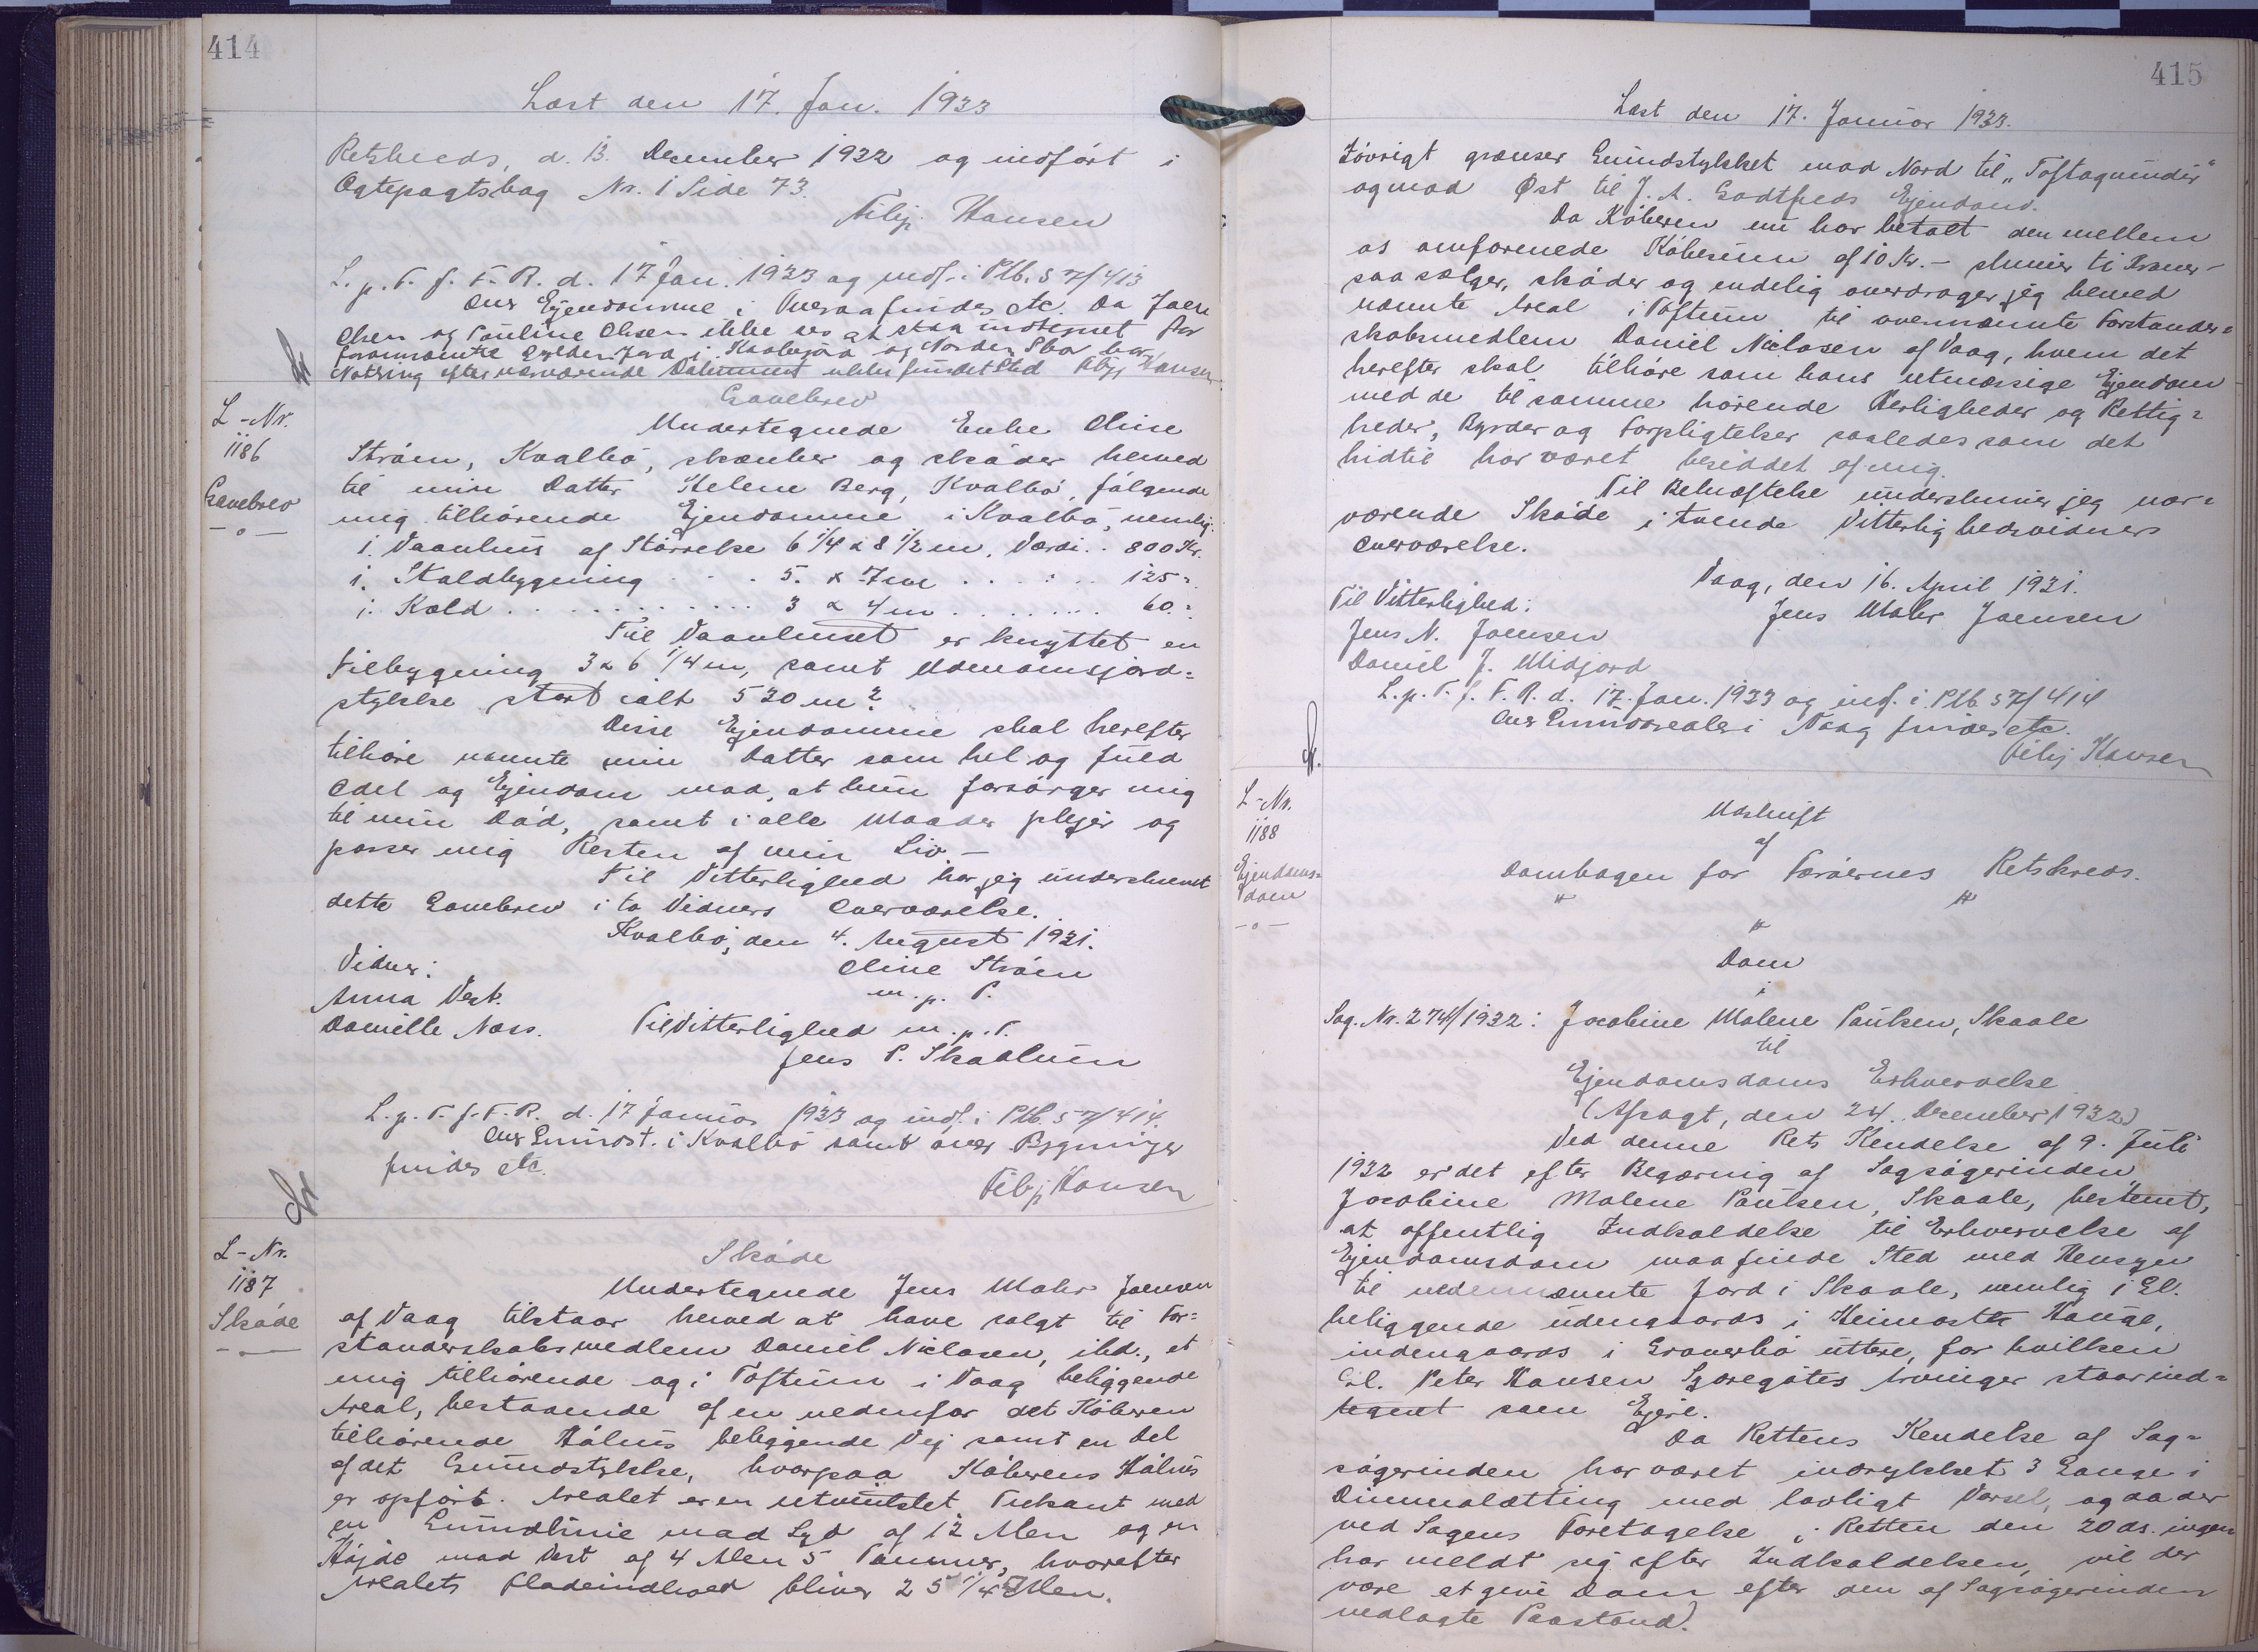 414
Læst den 17. Jan. 1933
Retskreds, d. 13. December 1932 og indført i
Ægtepagtsbog Nr. 1 Side 73.
Filip Hansen
L. p. T. f. F. R. d. 17 Jan. 1933 og indf. i Ptb. S 7/413
Over Ejendomme i findes etc. Da Joen
Olsen og Pauline Olsen ikke ses at staa indtegnet for
fornævnte Gylden Jord i og Norder har
Notering efter nærværende Dokument ikke fundet Sted Filip Hansen
L-Nr.
1186
Gavebrev
-o-
Gavebrev
Undertegnede Enke Oline
Strøm, Kvalbø, skænker og skøder herved
til min Datter Helene Berg, Kvalbø, følgende
mig tilhørende Ejendomme i Kvalbø, nemlig:
1. Vaanhus af Størrelse 6 1/4 x 8 1/2 m, Værdi .. 800 Kr.
1. Staldbygning . . . 5. x 7 m . . . . . 125 -
1. Kold . . . . . . . . . 3 x 4 m . . . . . . . 60. -
Til Vaanhuset er knyttet en
Tilbygning 3 x 6 1/4 m, samt Udenomsjord=
stykke stort ialt 530 m².
Disse Ejendomme skal herefter
tilhøre nævnte min Datter som hel og fuld
Odel og Ejendom mod, at hun forsørger mig
til min Død, samt i alle Maader plejer og
passer mig Resten af min Liv. -
Til Vitterlighed har jeg underskrevet
dette Gavebrev i to Vidners Overværelse.
Kvalbø, den 4. August 1931.
Vidner: Oline Strøm
Anna Vest. m. p. P.
Danielle Næss. Til Vitterlighed m. p. P.
Jens P. Skaalum
L. p. T. f. F. R. d. 17 Januar 1933 og indf. i Ptb. S 7/414.
Over Grundst. i Kvalbø samt over Bygninger
findes etc.
Filip Hansen
L-Nr.
1187
Skøde
Skøde
Undertegnede Jens Mohr Joensen
af Vaag tilstaar herved at have solgt til For=
standerskabsmedlem Daniel Niclasen, ibd., et
mig tilhørende og i Toftum i Vaag beliggende
Areal, bestaaende af en nedenfor det Køberen
tilhørende Hølus beliggende Vej samt en Del
af det Grundstykke, hvorpaa Køberens Hølus
er opført. Arealet er en retvinklet Trekant med
en Grundlinie mod Syd af 12 Alen og en
Højde mod Vest af 4 Alen 5 Tommer, hvorefter
Arealets Fladeindhold bliver 25 1/4 □ Alen.
415
Læst den 17. Januar 1933.
Iøvrigt grænser Grundstykket mod Nord til "Toftagrundir"
og mod Øst til J. A. Godtfreds Ejendom.
Da Køberen nu har betalt den mellem
os omforenede Købesum af 10 Kr. - skriver ti Kroner -
saa sælger, skøder og endelig overdrager jeg herved
nævnte Areal i Toftum til ovennævnte Forstander=
skabsmedlem Daniel Niclasen af Vaag, hvem det
herefter skal tilhøre som hans retmæssige Ejendom
med de til samme hørende Herligheder og Rettig=
heder, Byrder og Forpligtelser saaledes som det
hidtil har været besiddet af mig.
Til Bekræftelse underskriver jeg nær=
værende Skøde i tvende Vitterlighedsvidners
Overværelse.
Vaag, den 16. April 1931.
Til Vitterlighed: Jens Mohr Joensen
Jens N. Joensen
Daniel J. Midjord
L. p. T. f. F. R. d. 17. Jan. 1933 og indf. i Ptb. S 7/414
Over Grundarealer i Vaag findes etc.
Filip Hansen
L-Nr.
1188
Ejendoms=
dom
-o-
Udskrift
af
Dombogen for Færøernes Retskreds.
Dom
i
Sag. Nr. 274/1932: Jacobine Malene Paulsen, Skaale
til
Ejendomsdoms Erhvervelse
(Afsagt, den 24. December 1932)
Ved denne Rets Kendelse af 9. Juli
1932 er det efter Begæring af Sagsøgerinden,
Jacobine Malene Paulsen, Skaale, bestemt,
at offentlig Indkaldelse til Erhvervelse af
Ejendomsdom maa finde Sted med Hensyn
til nedennævnte Jord i Skaale, nemlig 1 Gl.
beliggende udengaards i Heimasta Hauge,
indengaards i Gravarbø uttere, for hvilken
Gl. Peter Hansen Sjøregøtes Arvinger staar ind=
tegnet som Ejere.
Da Rettens Kendelse af Sag=
søgerinden har været indrykket 3 Gange i
Dimmalætting med lovligt Varsel, og da der
ved Sagens Foretagelse i Retten den 20 ds. ingen
har meldt sig efter Indkaldelsen, vil der
være at give Dom efter den af Sagsøgerinden
nedlagte Paastand.